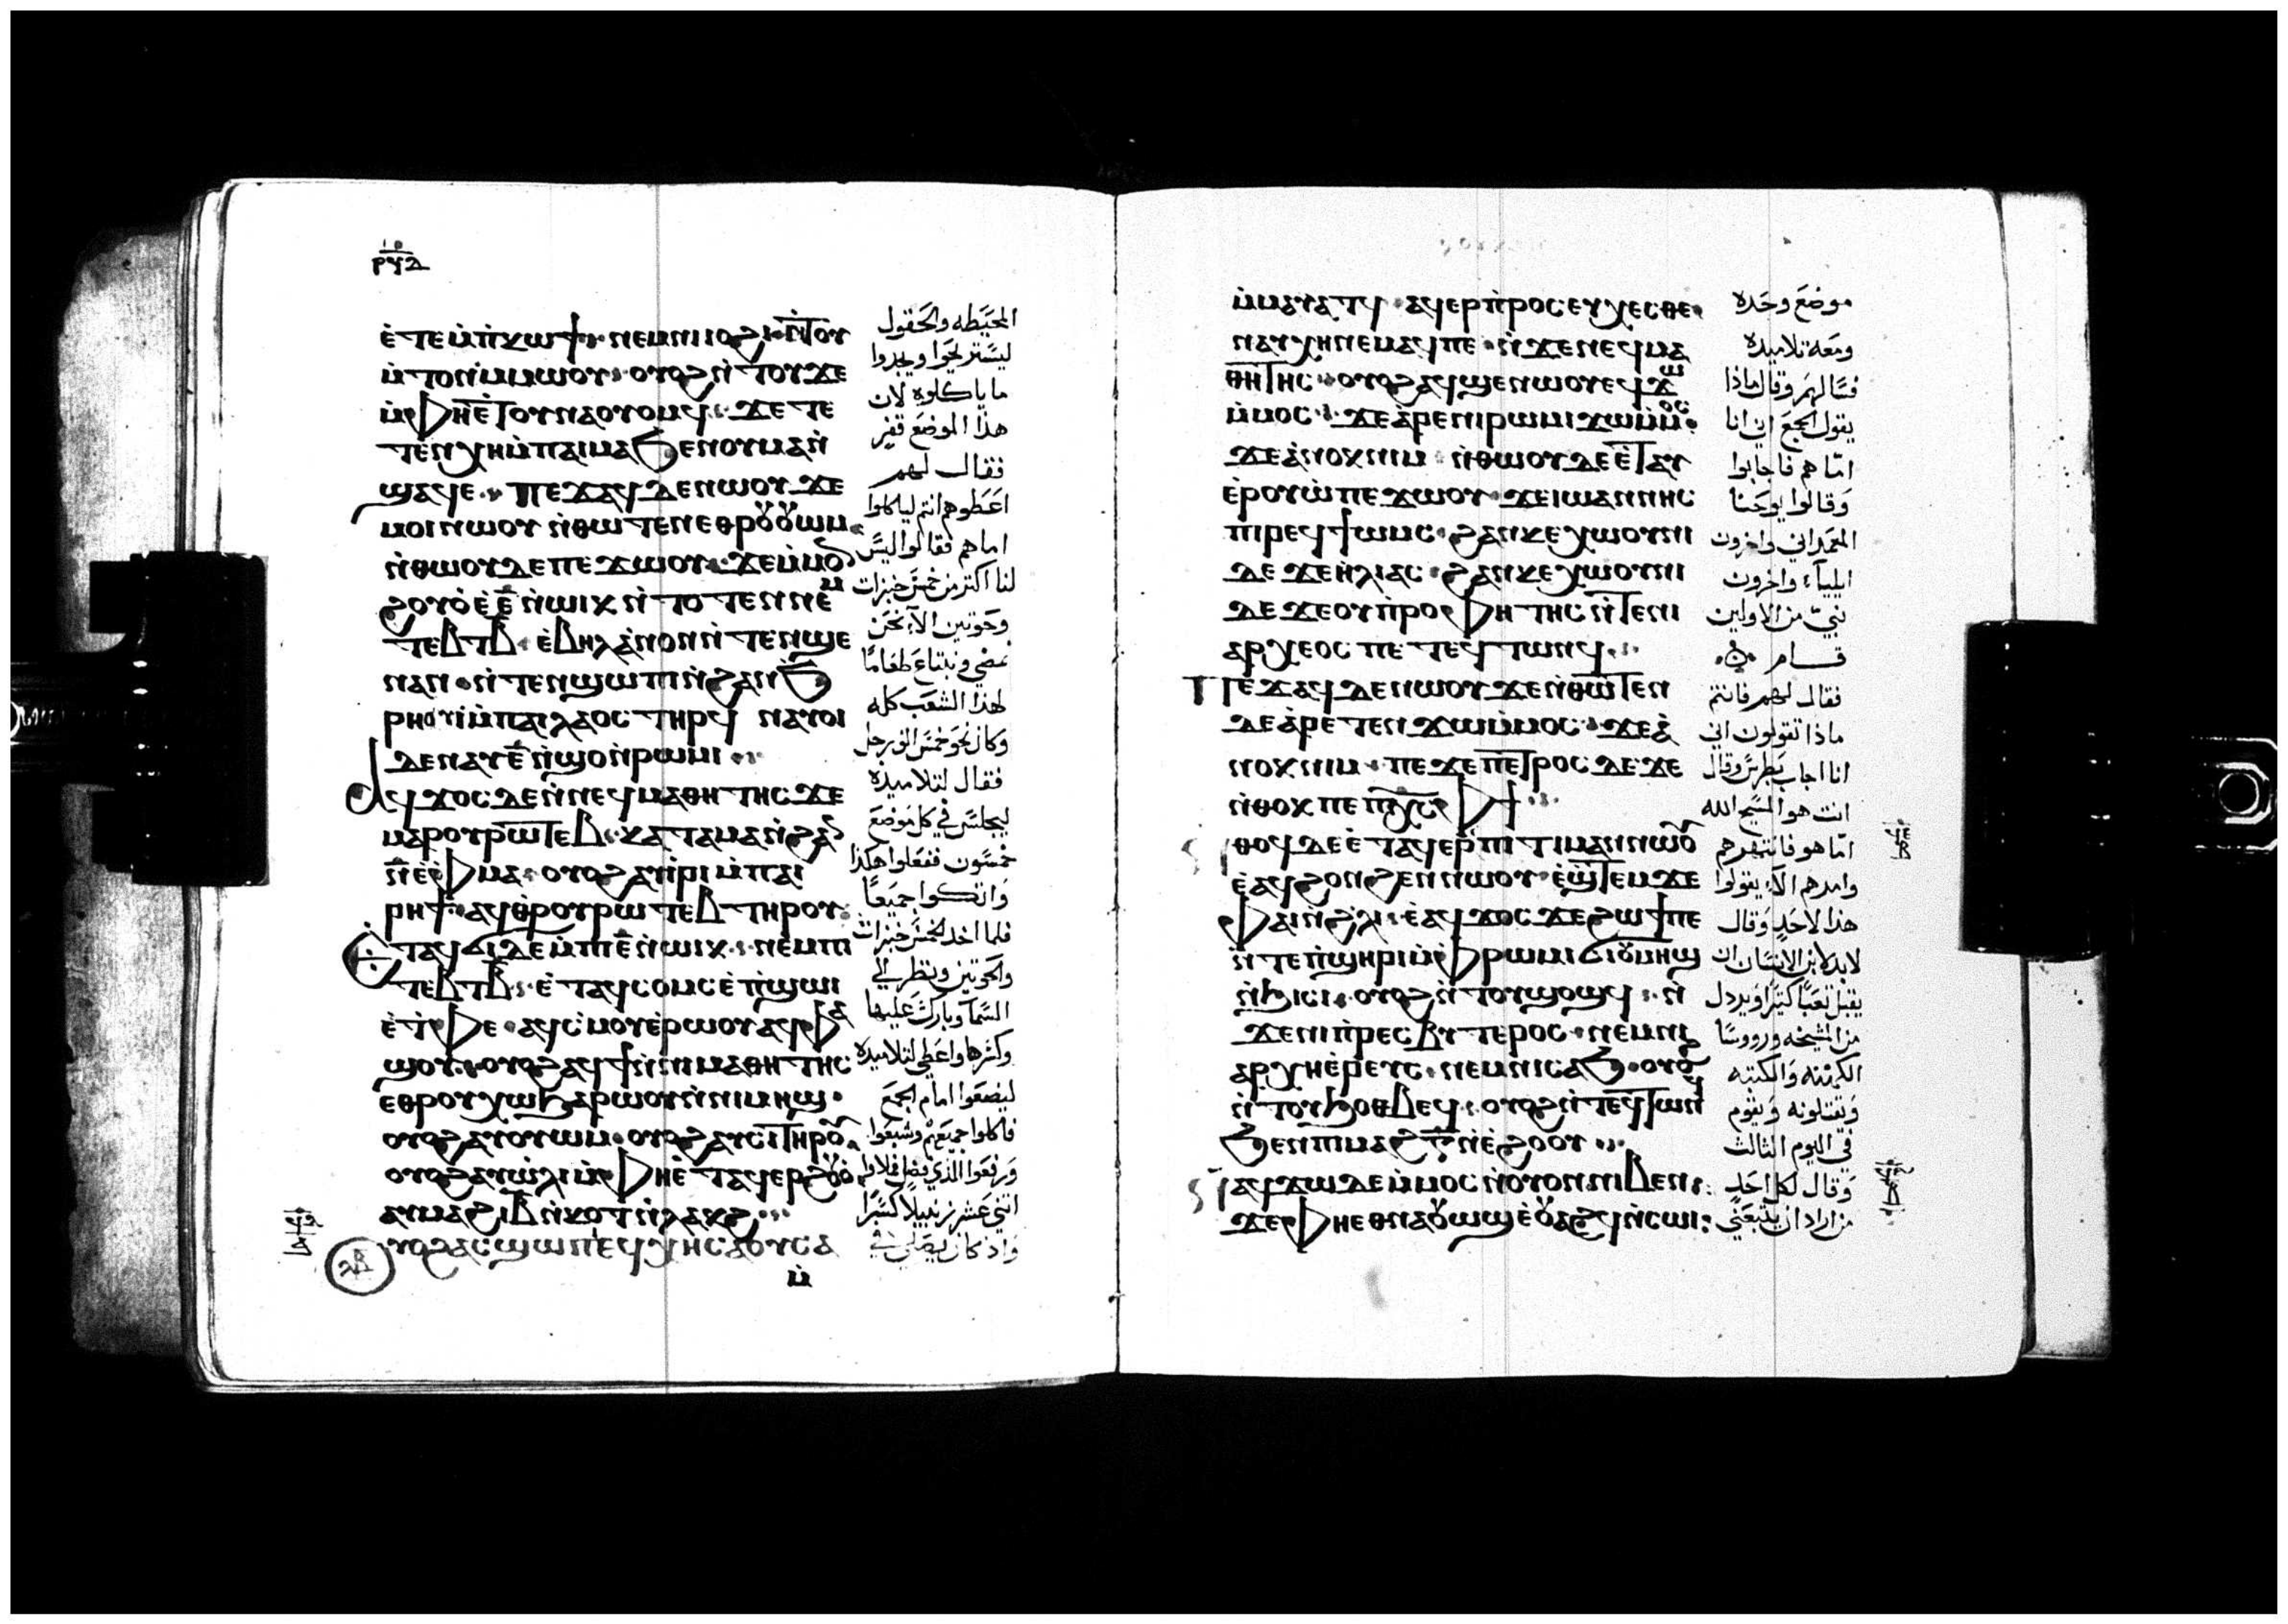 ⲣϥⲇ
ⲉ̀ⲧⲉⲙ̀ⲡ̀ⲕⲱϯ· ⲛⲉⲙⲛⲓⲓⲟϩⲓ· ⲛ̀ⲧⲟⲩ
ⲙ̀ⲧⲟⲛⲙ̀ⲙⲱⲟⲩ· ⲟⲩⲟϩ ⲛ̀ⲧⲟⲩϫⲉ
ⲙ̀ⲫⲏⲉ̀ⲧⲟⲩⲛⲁⲟⲩⲟⲙϥ· ϫⲉ ⲧⲉ
ⲧⲉⲛⲭⲏⲙ̀ⲡⲁⲓⲙⲁ ϧⲉⲛⲟⲩⲙⲁⲛ̀
ϣⲁϥⲉ· ⲡⲉϫⲁϥ ⲇⲉⲛⲱⲟⲩ ϫⲉ
ⲙⲟⲓⲛⲱⲟⲩ ⲛ̀ⲑⲱⲧⲉⲛⲉⲑⲣⲟⲩⲟⲩⲱⲙ
ⲛ̀ⲑⲱⲟⲩ ⲇⲉ ⲡⲉϫⲱⲟⲩ· ϫⲉⲙ̀ⲙⲟⲛ
ϩⲟⲩⲟ̀ ⲉ̀ⲉ̅ ⲛ̀ⲱⲓⲕ ⲛ̀ⲧⲟⲧⲉⲛ ⲛⲉⲙ
ⲧⲉⲃⲧⲃ̅· ⲉ̀ⲃⲏⲗ ⲁ̀ⲛⲟⲛ ⲛ̀ⲧⲉⲛϣⲉ
ⲛⲁⲛ· ⲛ̀ⲧⲉⲛϣⲱⲡ ⲛ̀ϩⲁⲛϧ̀
ⲣⲏⲟⲩⲓ̀ⲙ̀ⲡⲁⲓⲗⲁⲟⲥ ⲧⲏⲣϥ ⲛⲁⲩⲟⲓ
ⲇⲉⲛⲁⲩⲉ̅ ⲛ̀ϣⲟ ⲛ̀ⲣⲱⲙⲓ
ⲁϥϫⲟⲥ ⲇⲉⲛ̀ⲛⲉϥⲙⲁⲑⲏⲧⲏⲥ ϫⲉ
ⲙⲁⲣⲟⲩⲣⲱⲧⲉⲃ· ⲕⲁⲧⲁⲙⲁ ⲛ̀ϩⲁ
ⲛ ⲉ̀ⲫⲙⲁ· ⲟⲩⲟϩ ⲁⲩⲓ̀ⲣⲓ ⲙ̀ⲡⲁⲓ
ⲣⲏϯ· ⲁϥⲑ̀ⲣⲟⲩⲣⲱⲧⲉⲃ ⲧⲏⲣⲟⲩ
ⲉⲧⲁϥϭⲓ ⲇⲉ ⲙ̀ⲡⲓⲉ̅ ⲛ̀ⲱⲓⲕ· ⲛⲉⲙⲡⲓ
ⲧⲉⲃⲧⲃ̅· ⲉ̀ⲧⲁϥⲥⲟⲙⲥ ⲉ̀ⲡ̀ϣⲱⲓ
ⲉ̀ⲧ̀ⲫⲉ· ⲁϥⲥ̀ⲙⲟⲩⲉ̀ⲣⲱⲟⲩ ⲁϥⲫⲁ
ϣⲟⲩ· ⲟⲩⲟϩ ⲁϥϯⲛ̀ⲛⲓⲙⲁⲑⲏⲧⲏⲥ
ⲉⲑⲣⲟⲩⲭⲱ ϧⲁⲣⲱⲟⲩ ⲛ̀ⲛⲓⲙⲏϣ·
ⲟⲩⲟϩ ⲁⲩⲟⲩⲱⲙ· ⲟⲩⲟϩ ⲁⲩⲥⲓ ⲧⲏⲣⲟⲩ
ⲟⲩⲟϩ ⲁⲩⲱ̀ⲗⲓ ⲙ̀ⲫⲏⲉ̀ⲧⲁϥⲉⲣϩⲟⲩⲟ̀
ⲁⲩⲙⲁϩ ⲓ̅ⲃ̅ ⲛ̀ⲕⲟⲧ ⲛ̀ⲗⲁⲕϩ
ⲟⲩⲟϩ ⲁⲥϣⲱⲡⲓ ⲉϥⲭⲏ ⲥⲁⲟⲩⲥⲁ
ⲙ̀
المحيطه والحقول
ليستريحوا ويجدوا
ما ياكلوه لان
هذا الموضع قفر
فقال لهم
اعطوهم انتم لياكلوا
اما هم فقالوا ليس
لنا اكتر من خمس خبزات
وحوتين الا نحن
نمضي ونبتاع طعامًا
لهذا الشعب كله
وكان نحو خمس الف رجل
فقال لتلاميذه
ليجلس في كل موضع
خمسون ففعلوا هكذا
واتكوا جميعًا
فلما اخد الخمس خبزات
والحوتين ونظر الي
السما وبارك عليها
وكسرها واعطي لتلاميذه
ليضعوا امام الجمع
فاكلوا جميعهم وشبعوا
ورفعوا الذي فضل
اتني عشر زنبيلا كسرًا
واذ كان يصلي في
ⲙ̀ⲙⲁⲩⲁⲧϥ· ⲁϥⲉⲣⲡ̀ⲣⲟⲥⲉⲩⲭⲉⲥⲑⲉ·
ⲛⲁⲩⲭⲏ ⲛⲉⲙⲁϥⲡⲉ· ⲛ̀ϫⲉⲛⲉϥⲙⲁ
ⲑⲏⲧⲏⲥ· ⲟⲩⲟϩ ⲁϥϣⲉⲛⲱⲟⲩ ⲉϥϫⲱ
ⲙ̀ⲙⲟⲥ· ϫⲉ ⲁ̀ⲣⲉⲛⲓⲣⲱⲙⲓ ϫⲱⲙ̀ⲙⲟⲥ
ϫⲉ ⲁ̀ⲛⲟⲕ ⲛⲓⲙ· ⲛ̀ⲑⲱⲟⲩ ⲇⲉ ⲉ̀ⲧⲁⲩ
ⲉ̀ⲣⲟⲩⲱ̀ ⲡⲉϫⲱⲟⲩ· ϫⲉ ⲓⲱⲁⲛⲛⲏⲥ
ⲡⲓⲣⲉϥϯⲱⲙⲥ· ϩⲁⲛⲕⲉⲭⲱⲟⲩⲛⲓ
ⲇⲉ ϫⲉ ⲏ̀ⲗⲓⲁⲥ· ϩⲁⲛⲕⲉⲭⲱⲟⲩⲛⲓ
ⲇⲉ ϫⲉ ⲟⲩⲡ̀ⲣⲟⲫⲏⲧⲏⲥ ⲛ̀ⲧⲉⲛⲓ
ⲁⲣⲭⲉⲟⲥ ⲡⲉ ⲧⲉϥⲧⲱⲛϥ
ⲡⲉϫⲁϥ ⲇⲉⲛⲱⲟⲩ ϫⲉ ⲛ̀ⲑⲱⲧⲉⲛ
ⲇⲉ ⲁ̀ⲣⲉⲧⲉⲛϫⲱⲙ̀ⲙⲟⲥ· ϫⲉ ⲁ̀
ⲛⲟⲕ ⲛⲓⲙ· ⲡⲉϫⲉ ⲡⲉⲧⲣⲟⲥ ⲇⲉ ϫⲉ
ⲛ̀ⲑⲟⲕ ⲡⲉ ⲡⲭ̅ⲥ̅ ⲫϯ
ⲛ̀ⲑⲟϥ ⲇⲉ ⲉ̀ⲧⲁϥⲉⲣⲉⲡⲓⲧⲓⲙⲁⲛ ⲛⲱⲟⲩ
ⲉ̀ⲁϥϩⲟⲛϩⲉⲛ ⲛⲱⲟⲩ· ⲉ̀ϣ̀ⲧⲉⲙϫⲉ
ⲫⲁⲓ ⲛ̀ϩ̀ⲗⲓ· ⲉ̀ⲁϥϫⲟⲥ ϫⲉ ϩⲱϯ ⲡⲉ
ⲛ̀ⲧⲉⲡ̀ϣⲏⲣⲓ ⲙ̀ⲫⲣⲱⲙⲓ ϭⲓ ⲟⲩⲙⲏϣ
ⲛ̀ϧⲓⲥⲓ· ⲟⲩⲟϩ ⲛ̀ⲧⲟⲩϣⲟϣϥ· ⲛ̀
ϫⲉⲛⲓⲡ̀ⲣⲉⲥⲃⲩⲧⲉⲣⲟⲥ· ⲛⲉⲙⲛⲓ
ⲁⲣⲭⲏⲉ̀ⲣⲉⲩⲥ· ⲛⲉⲙⲛⲓⲥⲁϧ· ⲟⲩⲟϩ
ⲛ̀ⲧⲟⲩϧⲟⲑⲃⲉϥ· ⲟⲩⲟϩ ⲛ̀ⲧⲉϥⲧⲱⲛϥ
ϧⲉⲛⲡⲓⲙⲁϩⲅ̅ ⲛ̀ⲉ̀ϩⲟⲟⲩ
ⲛⲁϥϫⲱ ⲇⲉ ⲙ̀ⲙⲟⲥ ⲛ̀ⲟⲩⲟⲛⲛⲓⲃⲉⲛ
ϫⲉ ⲫⲏⲉⲑⲛⲁⲟⲩⲱϣ ⲉ̀ⲟⲩⲁϩϥ ⲛ̀ⲥⲱⲓ
موضع وحده
ومعه تلاميذه
فسالهم وقال ماذا
يقول الجمع اني انا
اما هم فاجابوا
وقالوا يوحنا
المعمداني واخرون
ايلياء واخرون
نبي من الاولين
قام
فقال لهم فانتم
ماذا تقولون اني
انا اجاب بطرس وقال
انت هو المسيح الله
اما هو فانتهرهم
وامرهم الا يقولوا
هذا لاحد وقال
لابد لابن الانسان ان
يقبل تعبًا كتيرًا ويردل
من المشيخه ورووسا
الكهنه والكتبه
ويقتلونه ويقوم
في اليوم الثالث
وقال لكل احد
من اراد ان يتبعني